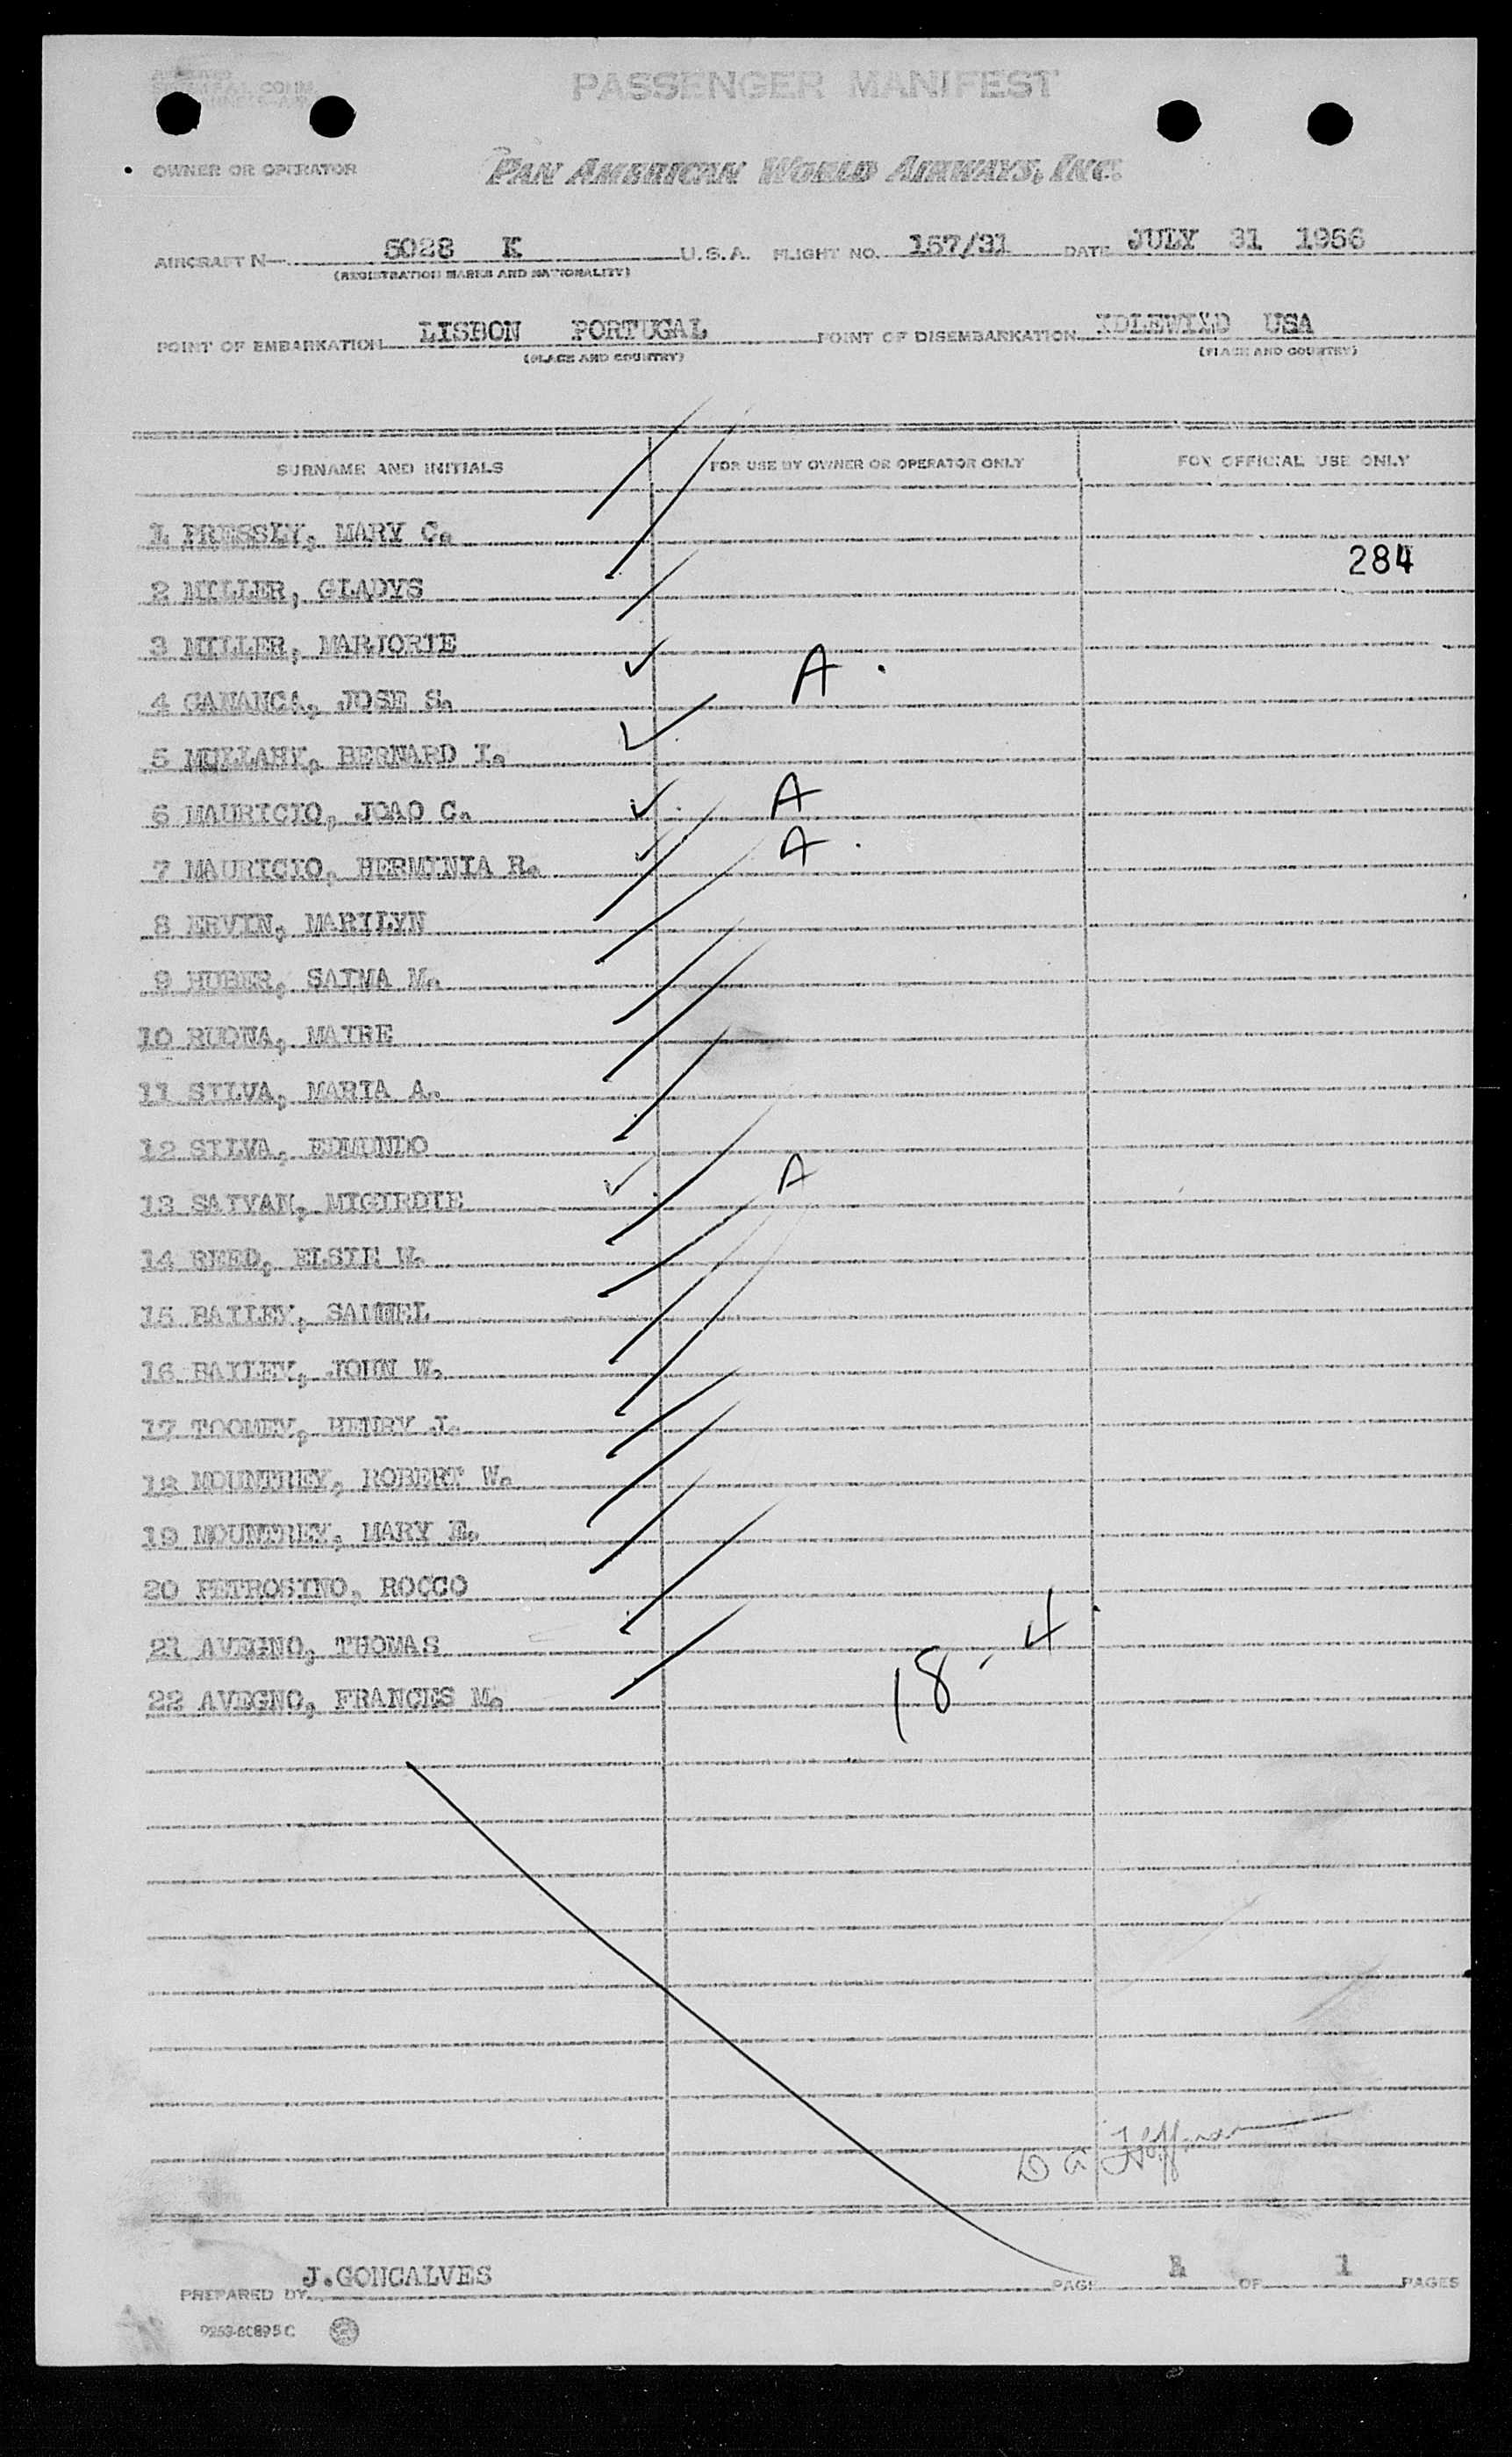 PASSENGER MANIFEST
OWNER OR OPERATOR PAN AMERICAN WORLD AIRWAYS, INC.
AIRCRAFT N 5028 K U.S.A. FLIGHT NO. 157/31 DATE JULY 31 1956
(REGISTRATION MARKS AND NATIONALITY)
POINT OF EMBARKATION LISBON PORTUGAL POINT OF DISEMBARKATION IDLEWILD USA
(PLACE AND COUNTRY) (PLACE AND COUNTRY)
SURNAME AND INITIALS FOR USE BY OWNER OR OPERATOR ONLY FOR OFFICIAL USE ONLY
1 PRESSLY, MARY C.
284
2 MILLER, GLADYS
3 MILLER, MARJORIE
4 GANANCA, JOSE S. A
5 MULLAHY, BERNARD I.
6 MAURICIO, JOAO C. A
7 MAURICIO, HERMINIA R. A
8 ERVIN, MARILYN
9 HUBER, SAIMA M.
10 RUONA, MAIRE
11 SILVA, MARIA A.
12 SILVA, EDMUNDO
13 SAIVAN, MIGIRDIE A
14 REED, ELSIE W.
15 BAILEY, SAMUEL
16 BAILEY, JOHN W.
17 TOOMEY, HENRY J.
18 MOUNTREY, ROBERT W.
19 MOUNTREY, MARY E.
20 PETROSINO, ROCCO
21 AVEGNO, THOMAS
18 - 4
22 AVEGNO, FRANCES M.
D G Hoffman
PREPARED BY J.GONCALVES PAGE 1 OF 1 PAGES